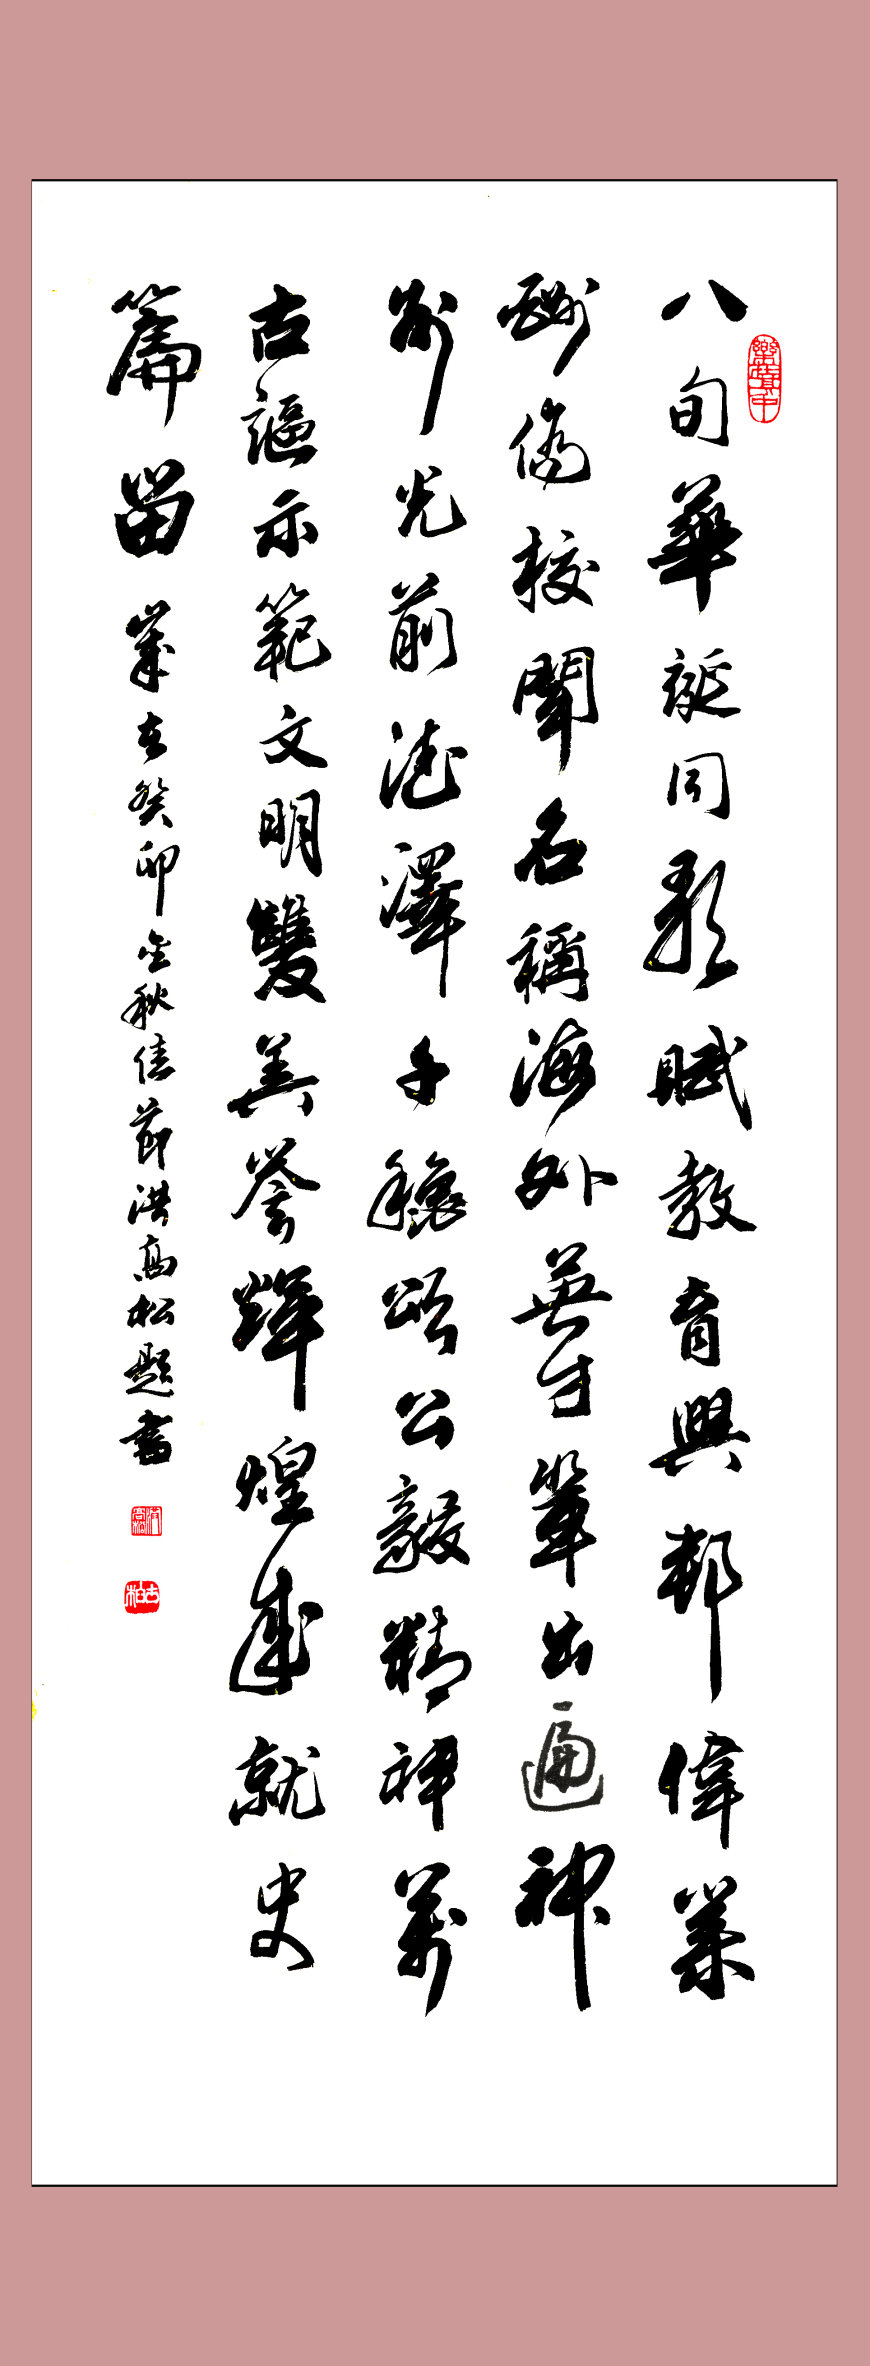 八旬華誕同歌賦教育興邦偉業
酬僑校聞名稱海外英才輩出遍神
州光前德澤千穐頌公毅精神萬
古謳示範文明雙美譽輝煌成就史
篇留 歲在癸卯金秋佳節洪高松題書